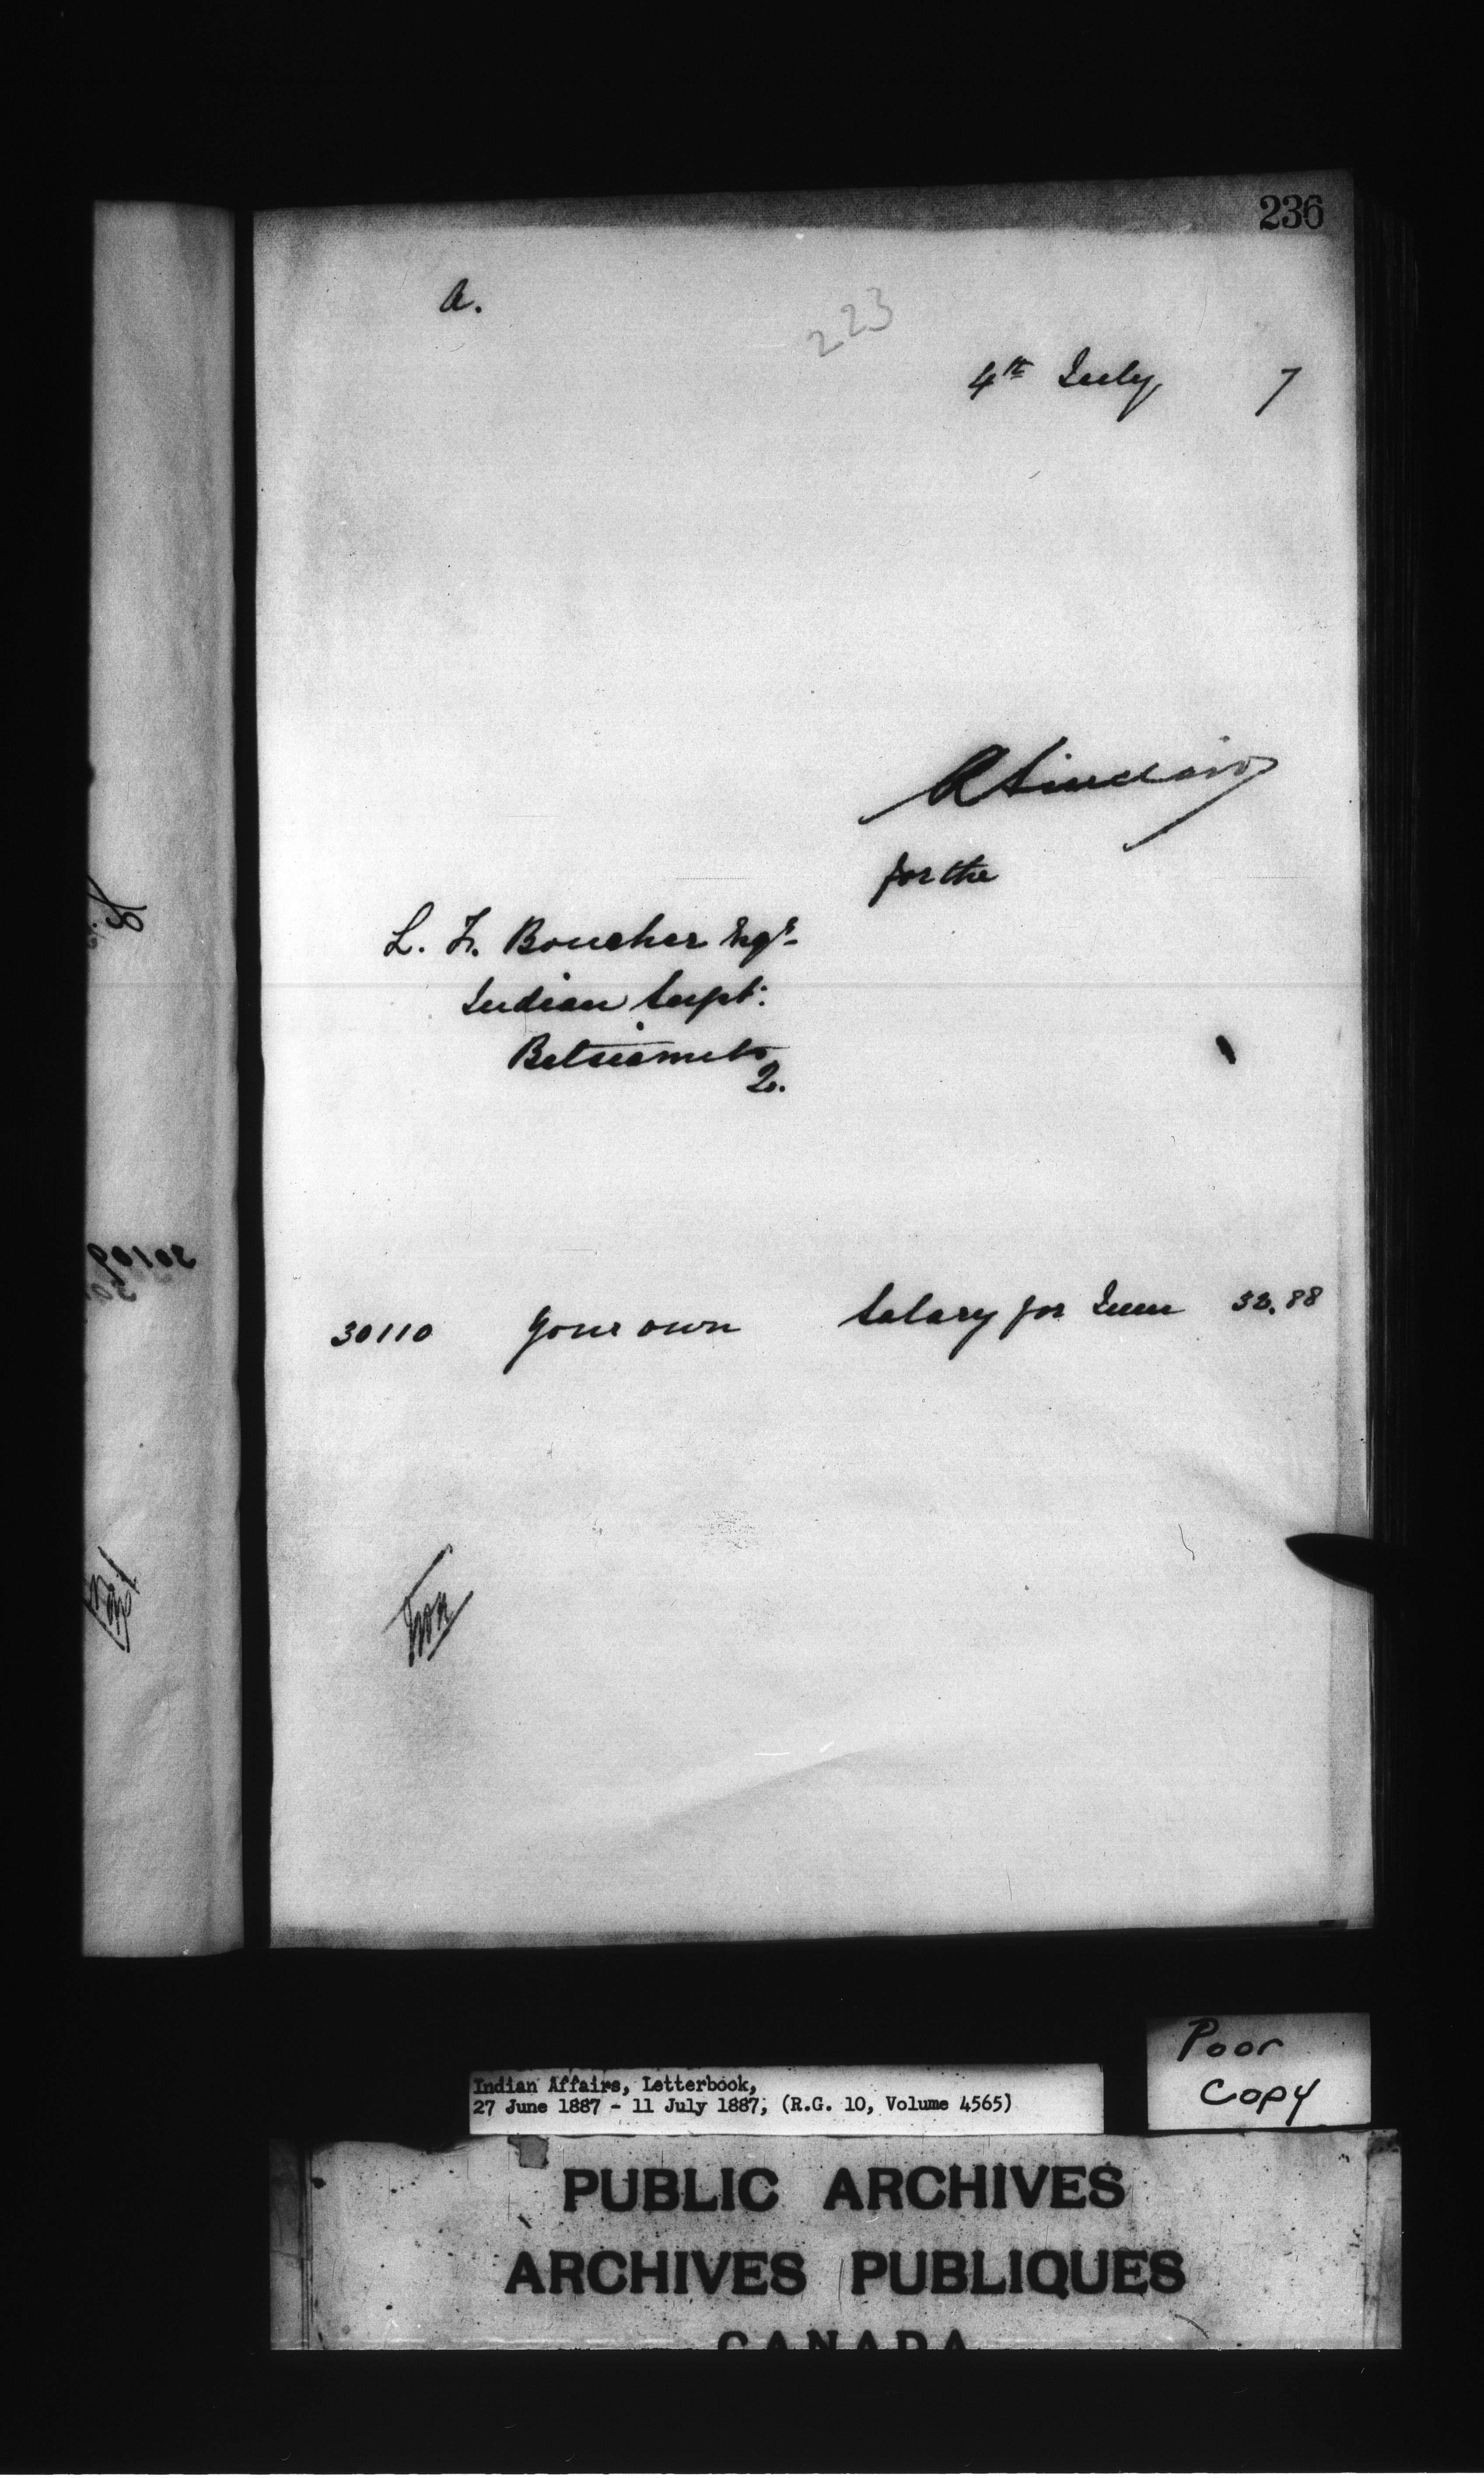 236
a.
223
4th July 7
R Sinclair
for the
L. F. Boucher Esqr
Indian Supt:
Betsiamits
Q.
30110 Your own Salary for June 32.88
Poor
Copy
Indian Affairs, Letterbook,
27 June 1887 - 11 July 1887, (R.G. 10, Volume 4565)
PUBLIC ARCHIVES
ARCHIVES PUBLIQUES
CANADA